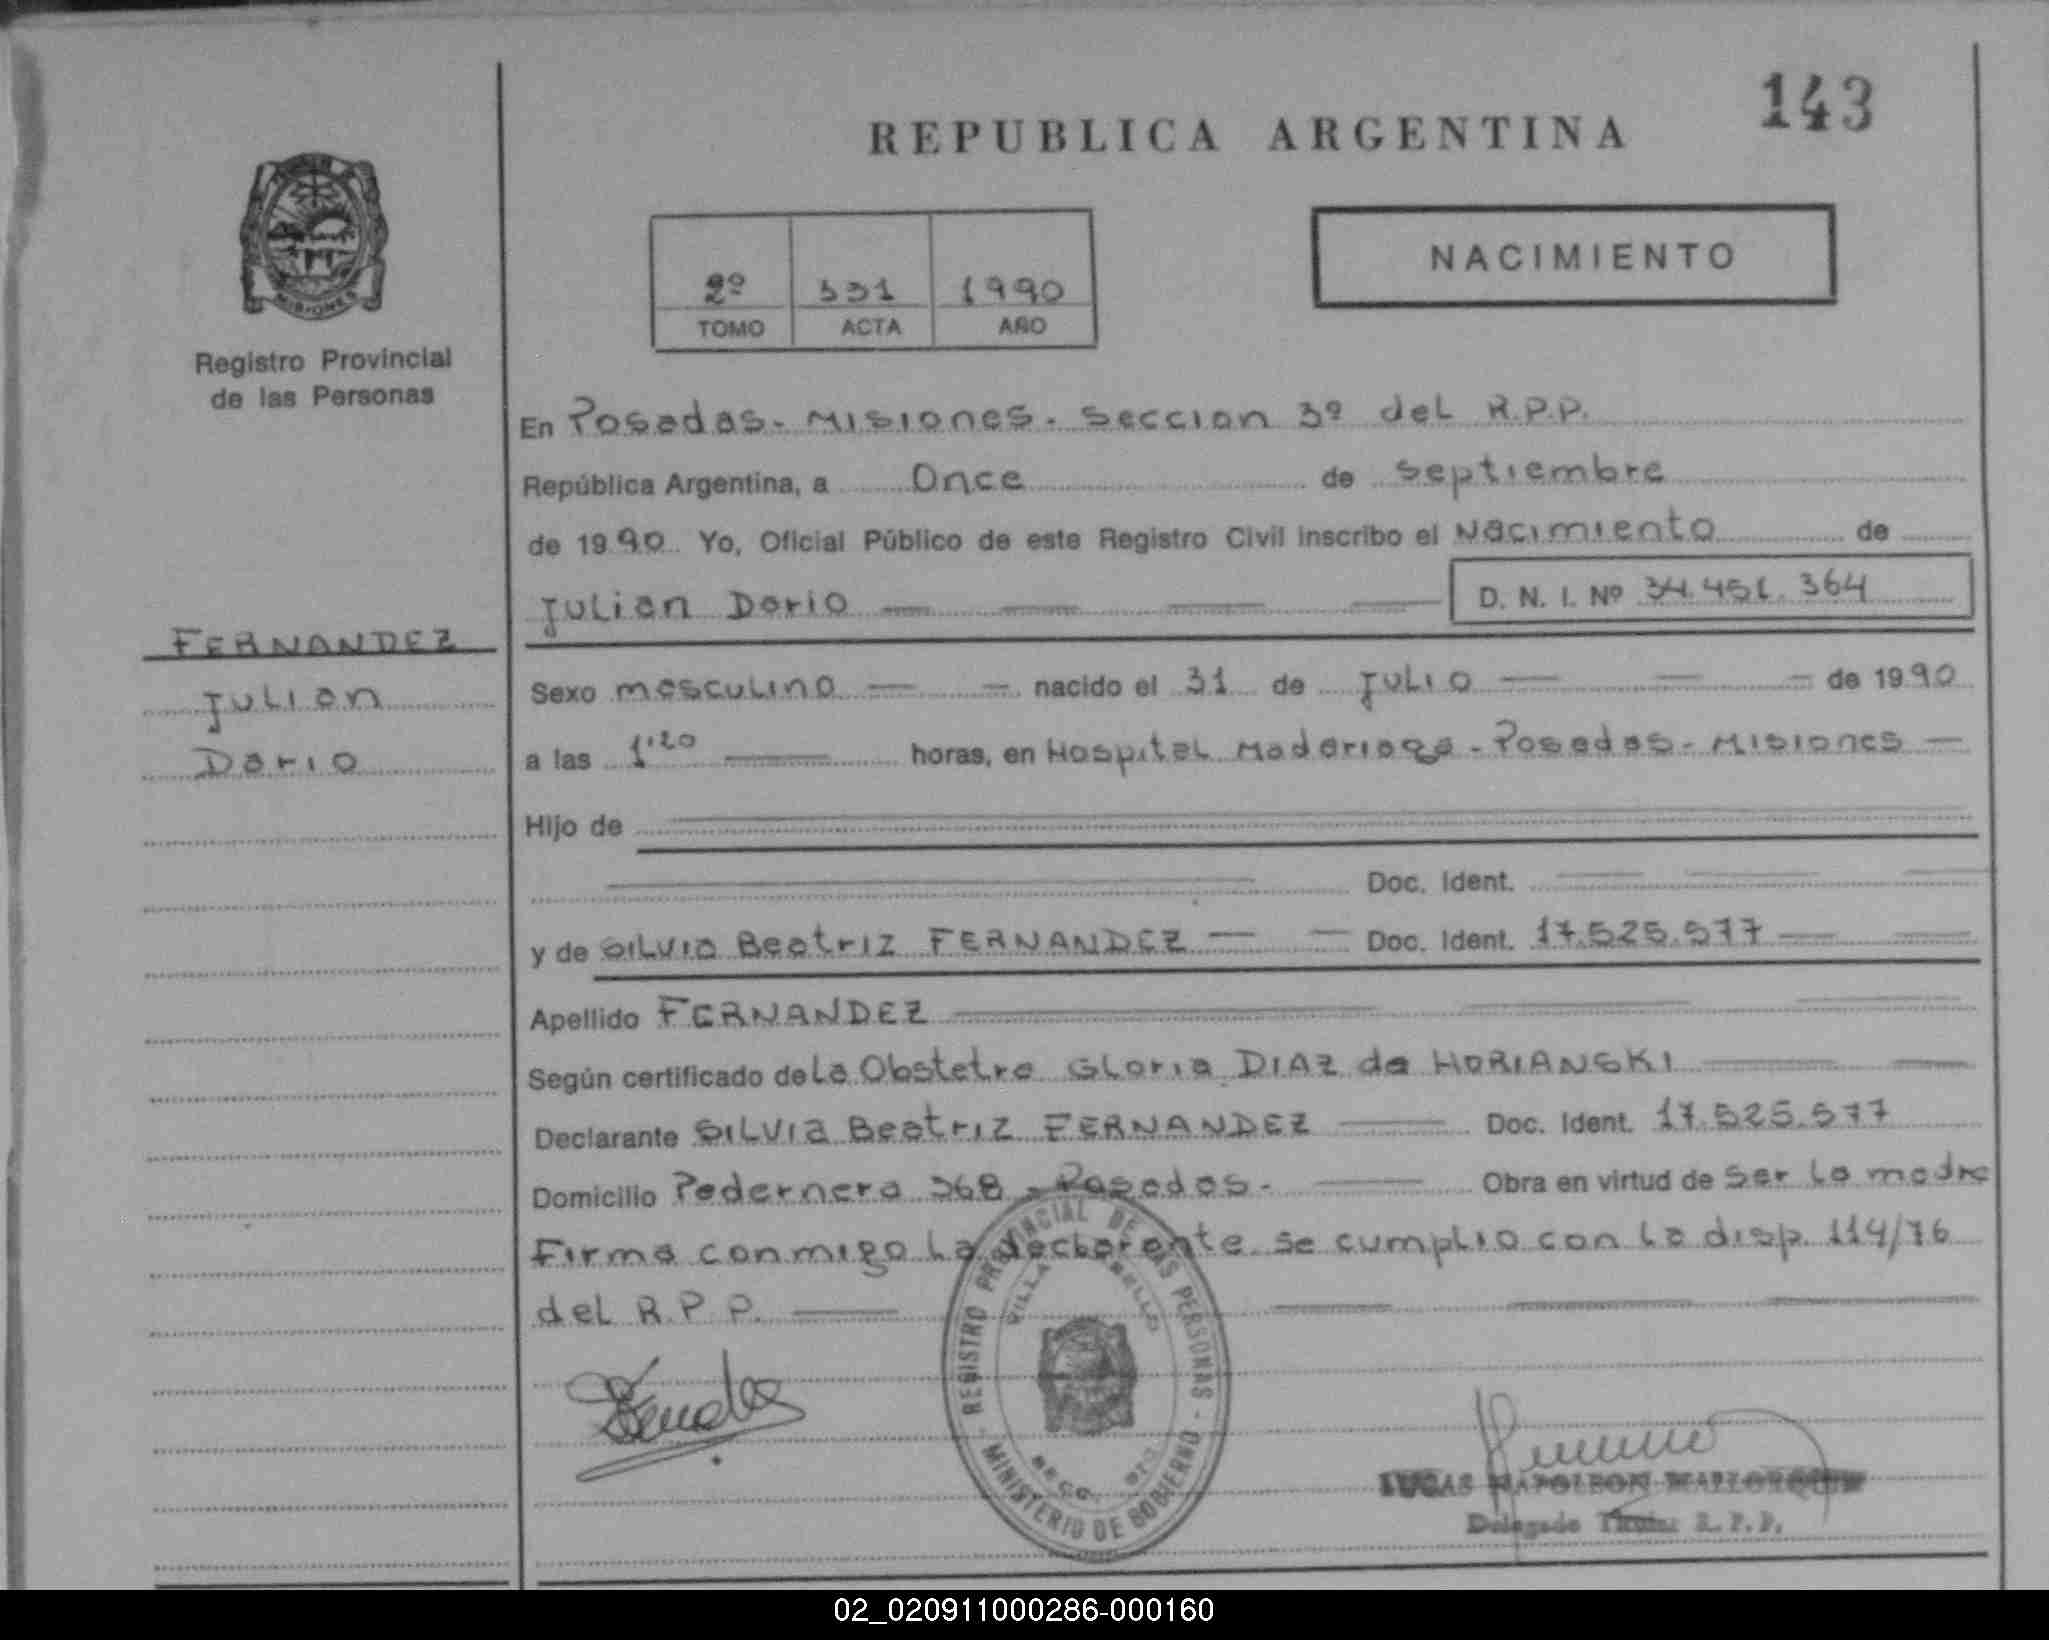 143
REPUBLICA ARGENTINA
NACIMIENTO
2º 331 1990
TOMO ACTA AÑO
MISIONES
Registro Provincial
de las Personas
FERNANDEZ
Julian
Dario
En Posadas - Misiones - Seccion 3º del R.P.P.
República Argentina, a Once de Septiembre
de 1990 Yo, Oficial Público de este Registro Civil inscribo el Nacimiento de
Julian Dario D. N. I. Nº 34.451.364
Sexo masculino nacido el 31 de Julio de 1990
a las 1'20 horas, en Hospital Madariaga - Posadas - Misiones
Hijo de
Doc. Ident.
y de Silvia Beatriz FERNANDEZ Doc. Ident. 17.525.577
Apellido FERNANDEZ
Según certificado de La Obstetra Gloria DIAZ de HORIANSKI
Declarante Silvia Beatriz FERNANDEZ Doc. Ident. 17.525.577
Domicilio Pedernera 368 - Posadas - Obra en virtud de Ser la madre
Firma conmigo la declarante se cumplio con la disp. 114/76
del R.P.P.
REGISTRO PROVINCIAL DE LAS PERSONAS - MINISTERIO DE GOBIERNO -
VILLA
LUCAS NAPOLEON
Delegado Titular R.P.P.
02_020911000286-000160